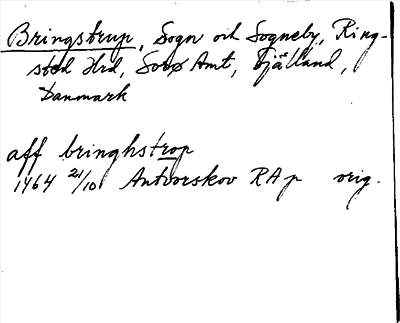 Bringstrup, Sogn och Sogneby, Ring-
sted Hrd, Sorø Amt, Själland,
Danmark
aff bringhstrop
1464 21/10 Antvorskov RA p orig.